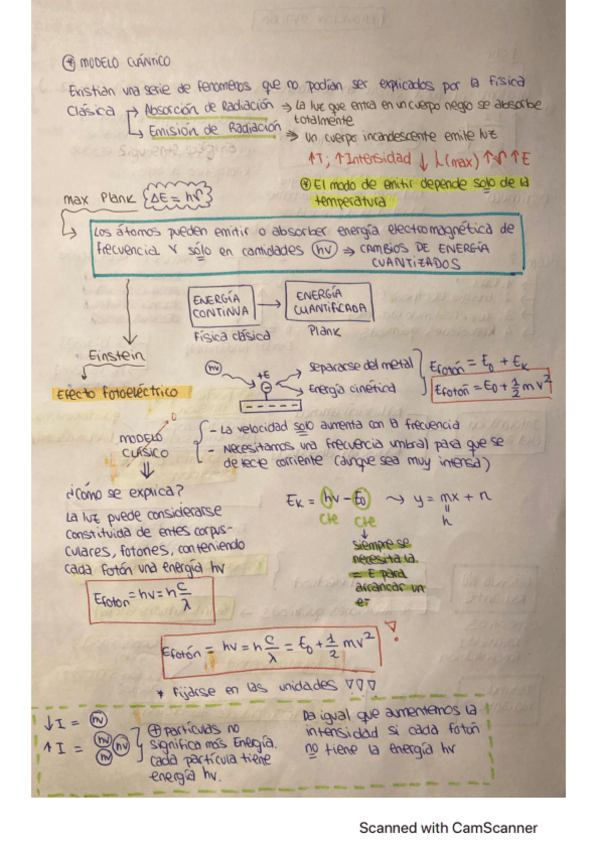 * MODELO CUÁNTICO
Existían una serie de fenómenos que no podían ser explicados por la Física
Clásica → Absorción de Radiación → La luz que entra en un cuerpo negro se absorbe
totalmente
→ Emisión de Radiación → Un cuerpo incandescente emite luz
↑T; ↑Intensidad ↓ λ(max) ↑ν ↑E
* El modo de emitir depende solo de la
temperatura
Max Plank {ΔE = hν}
Los átomos pueden emitir o absorber energía electromagnética de
frecuencia γ sólo en cantidades (hν) → CAMBIOS DE ENERGÍA
CUANTIZADOS
ENERGÍA CONTINUA → ENERGÍA CUANTIFICADA
Física clásica Plank
Einstein
Efecto fotoeléctrico
hν
+E
separarse del metal
Energía cinética
Efotón = E0 + EK
Efotón = E0 + 1/2 mv²
MODELO
CLÁSICO
- La velocidad solo aumenta con la frecuencia
- Necesitamos una frecuencia umbral para que se
detecte corriente (aunque sea muy intensa)
¿Cómo se explica?
La luz puede considerarse
constituida de entes corpus-
culares, fotones, conteniendo
cada fotón una energía hν
Efotón = hν = h c/λ
EK = hν - E0 → y = mx + n
cte cte h
siempre se
necesita la
= E para
arrancar un
e-
Efotón = hν = h c/λ = E0 + 1/2 mv² !
* Fijarse en las unidades ∇∇∇
↓I = hν
↑I = hν hν hν
⊕ partículas no
significa más Energía.
cada partícula tiene
energía hν.
Da igual que aumentemos la
intensidad si cada fotón
no tiene la energía hν
Scanned with CamScanner